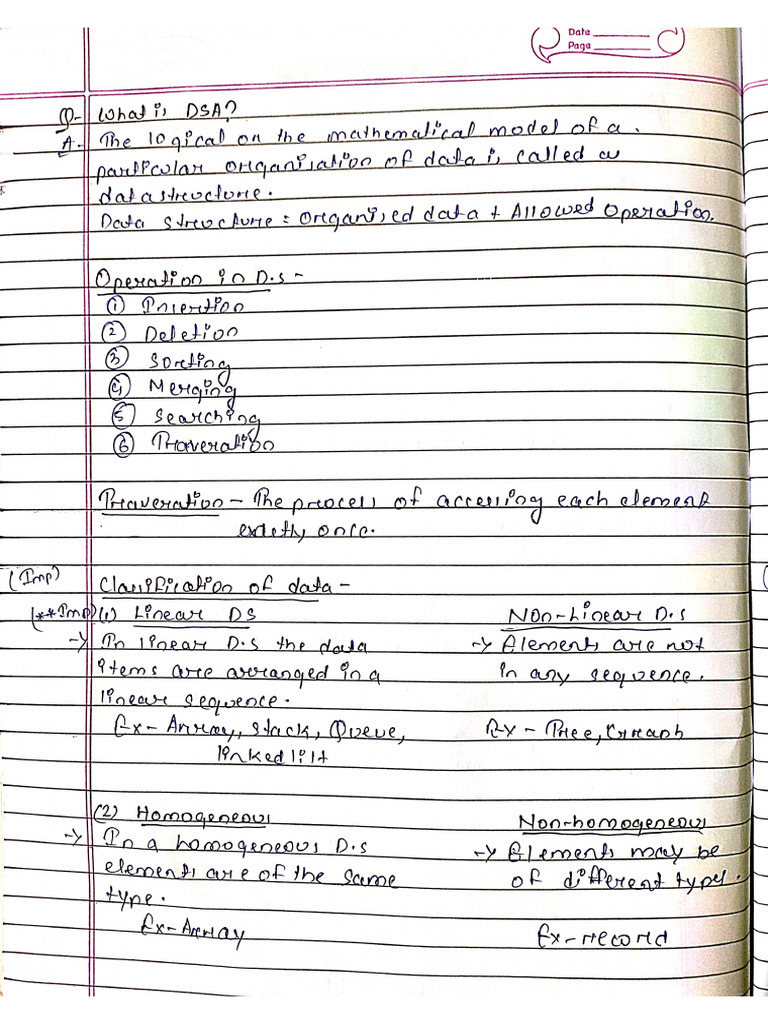 Date
Page
Q- What is DSA?
A- The logical or the mathematical model of a
particular organisation of data is called a
datastructure.
Data structure = Organised data + Allowed Operation.
Operation in D.s -
① Insertion
② Deletion
③ Sorting
④ Merging
⑤ Searching
⑥ Traveration
Traveration - The process of accessing each element
exactly once.
(Imp) Classification of data -
(**Imp) (1) Linear DS Non-Linear D.s
→ In linear D.s the data → Elements are not
items are arranged in a in any sequence.
linear sequence.
Ex- Array, Stack, Queue, Ex - Tree, Graph
linked list
(2) Homogeneous Non-homogeneous
→ In a homogeneous D.s → Elements may be
elements are of the same of different type.
type.
Ex- Array Ex- record